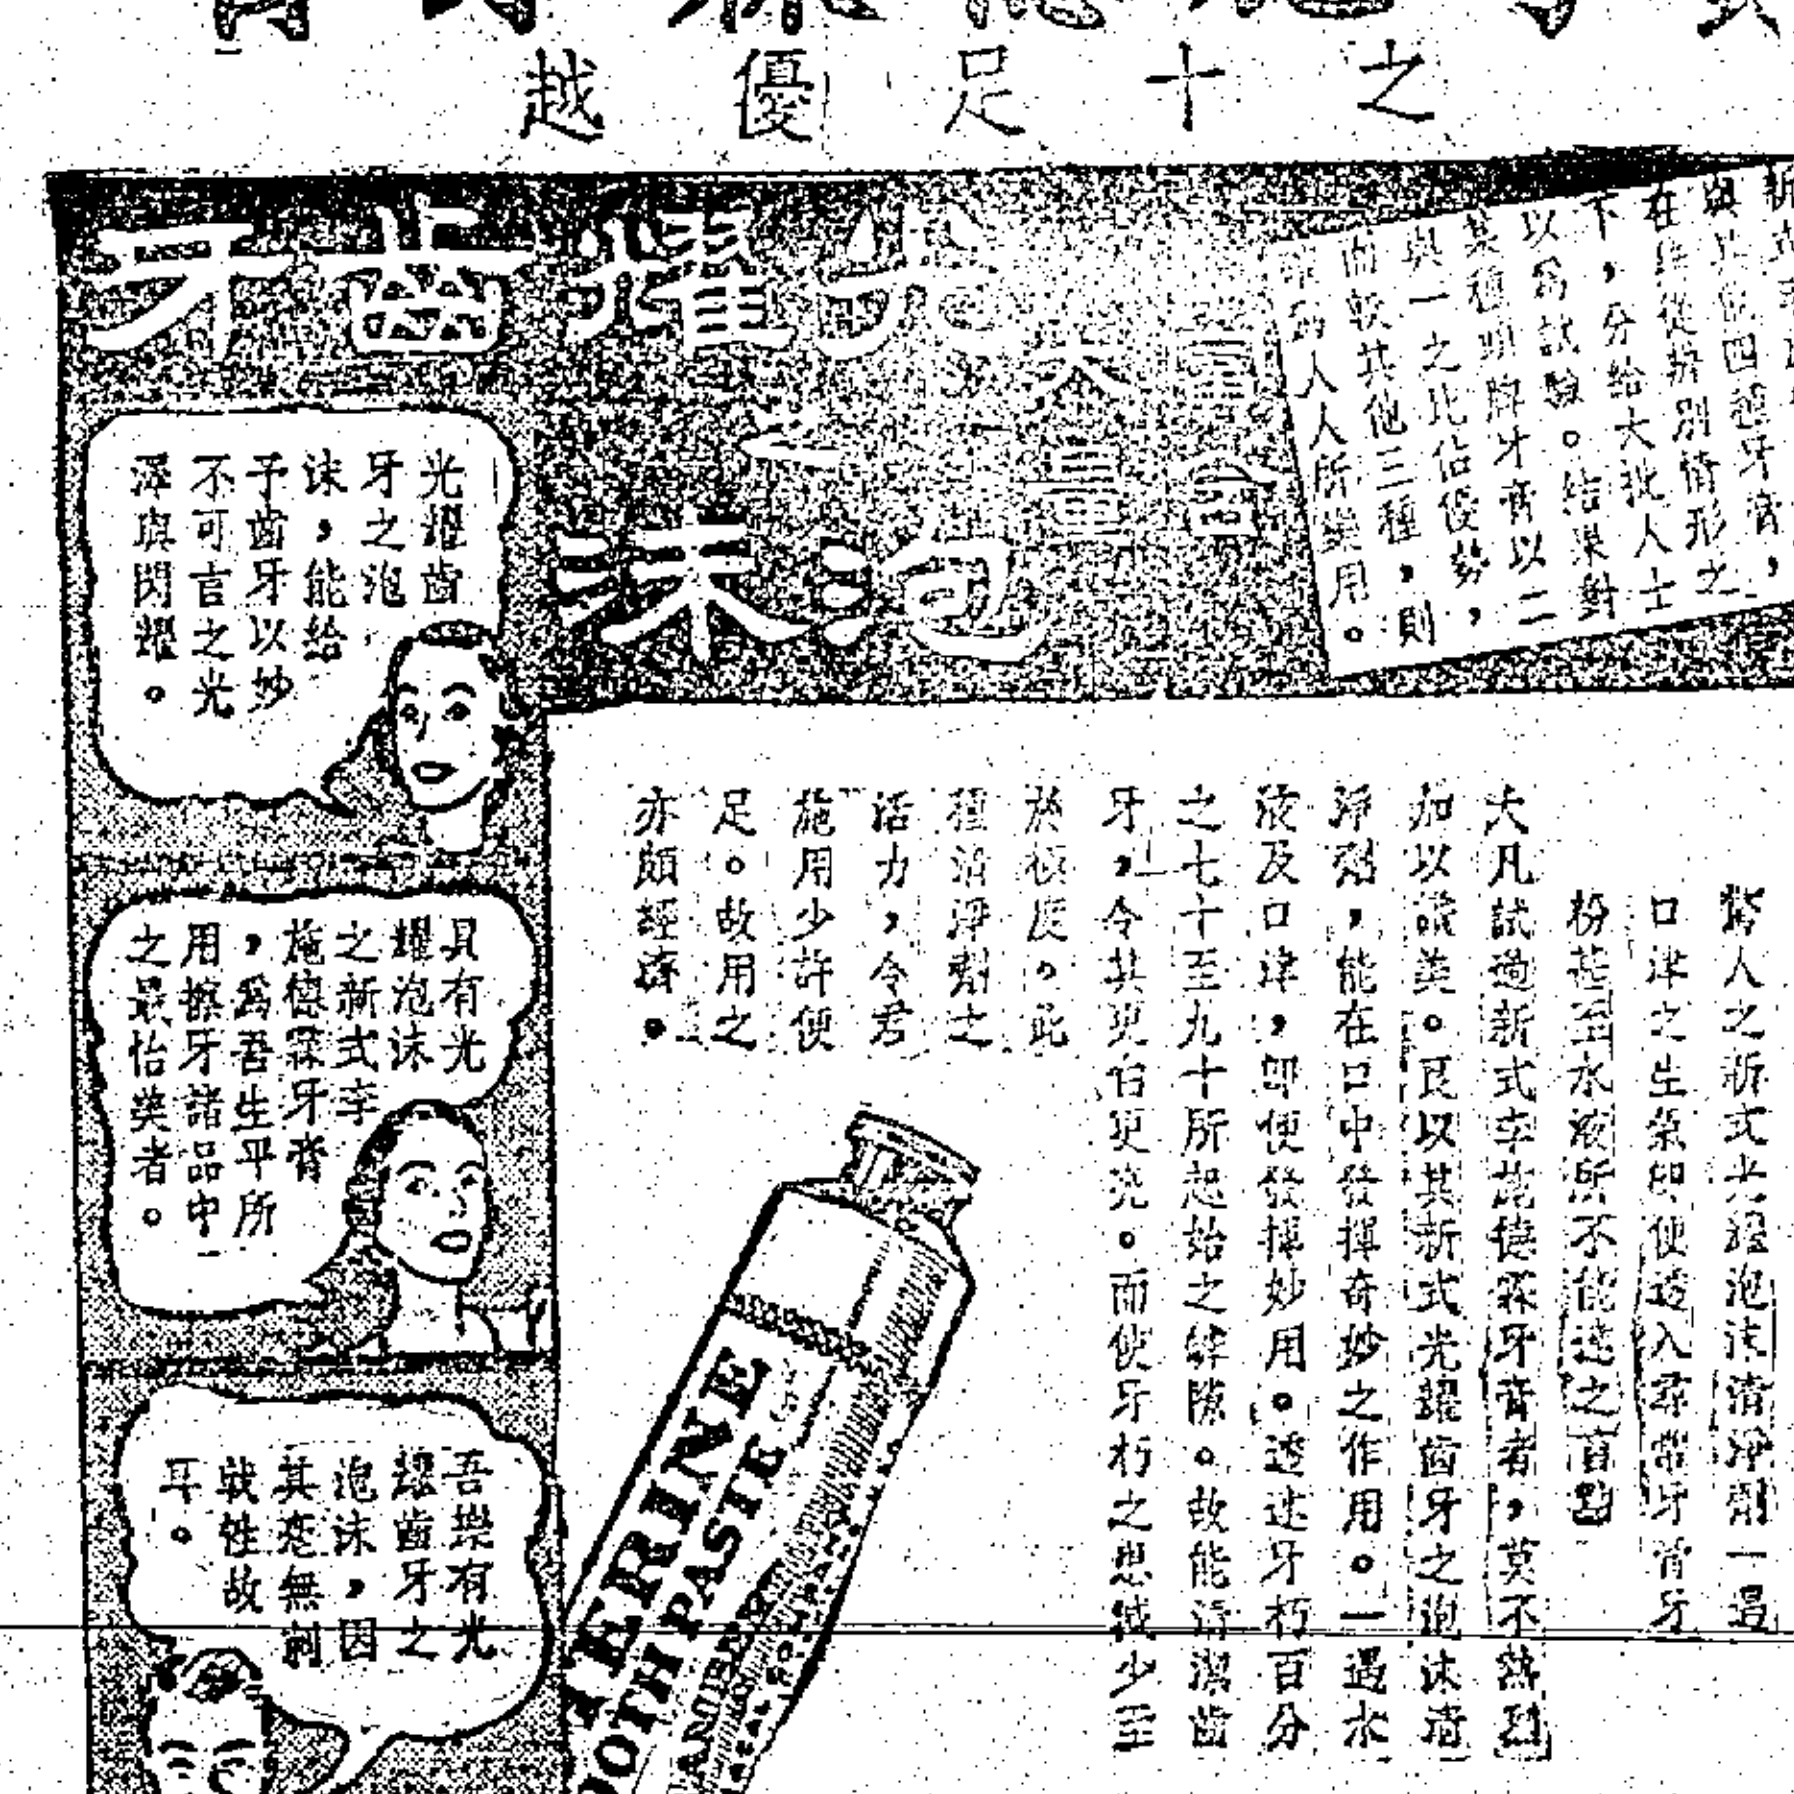 之十足優越
含有大量
光耀齒牙
之泡沫
與其他四種牙膏,
在無從辨別情形之
下,分給大批人士
以爲試驗。結果對
某種明牌牙膏以二
與一之比佔優勢,
而較其他三種,則
人人所樂用。
光耀齒
牙之泡
沫,能給
予齒牙以妙
不可言之光
澤與閃耀。
具有光
耀泡沫
之新式李
施德霖牙膏
,爲吾生平所
用擦牙諸品中
之最怡美者。
吾樂有光
耀齒牙之
泡沫,因
其毫無刺
戟性故
耳。
驚人之新式光耀泡沫清淨劑一遇
口津之生氣即便透入尋常牙膏牙
粉甚至水液所不能達之盲點
大凡試過新式李施德霖牙膏者,莫不熱烈
加以讚美。良以其新式光耀齒牙之泡沫清
淨劑,能在口中發揮奇妙之作用。一遇水
液及口津,即便發揮妙用。透達牙朽百分
之七十至九十所起始之罅隙。故能清潔齒
牙,令其更白更亮。而使牙朽之患減少至
於極度。此
種清淨劑之
活力,令君
施用少許便
足。故用之
亦頗經濟。
TERINE
OOTH PASTE